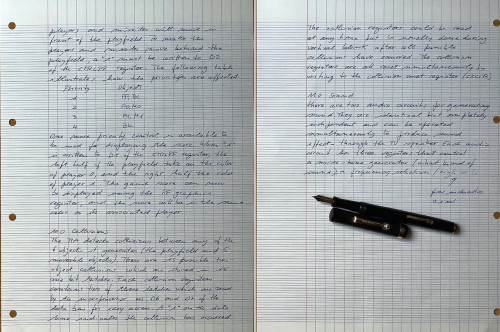 players and missiles will move in
front of the playfield. To make the
players and missiles move behind the
playfield, a "1" must be written to D2
of the CTRLPF register. The following table
illustrates how the priorities are affected
Priority Objects
1
2
3
4
One more priority control is available to
be used for displaying the score. When a "1"
is written to D1 of the CTRLPF register, the
left half of the playfield takes on the color
of player 0, and the right half the color
of player 1. The game score can now
be displayed using the PF graphics
register, and the score will be in the same
color as its associated player.
Collisions
The TIA detects collisions between any of the
6 objects it generates (the playfield and 5
moveable objects). There are 15 possible two-
object collisions which are stored in 15
one bit latches. Each collision register
contains two of these latches which are read
by the microprocessor on D6 and D7 of the
data bus for easy access. A "1" on the data
line indicates the collision has occurred.
The collision registers could be read
at any time but is usually done during
vertical blank after all possible
collisions have occurred. The collision
registers are all reset simultaneously by
writing to the collision reset register (CXCLR).
Sound
There are two audio circuits for generating
sound. They are identical but completely
independent and can be operated
simultaneously to produce sound
effects through the TV speaker. Each audio
circuit has three registers that control
a noise-tone generator (what kind of
sound), a frequency selection